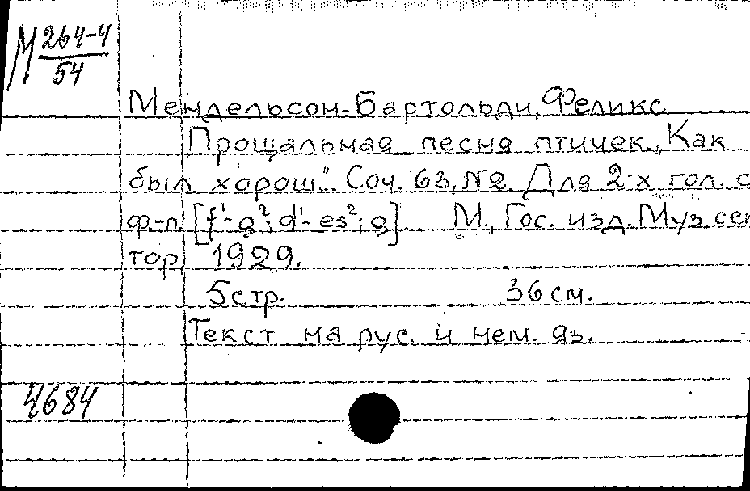 М 264-4
54
Мендельсон-Бартольди, Феликс
Прощальная песня птичек „Как
был хорош“. Соч. 63, №2. Для 2-х гол. с
ф-п. [f¹-g²; d¹-es²; g] М., Гос. изд. Муз. сек
тор, 1929.
5 стр. 36 см.
Текст на рус. и нем. яз.
4684